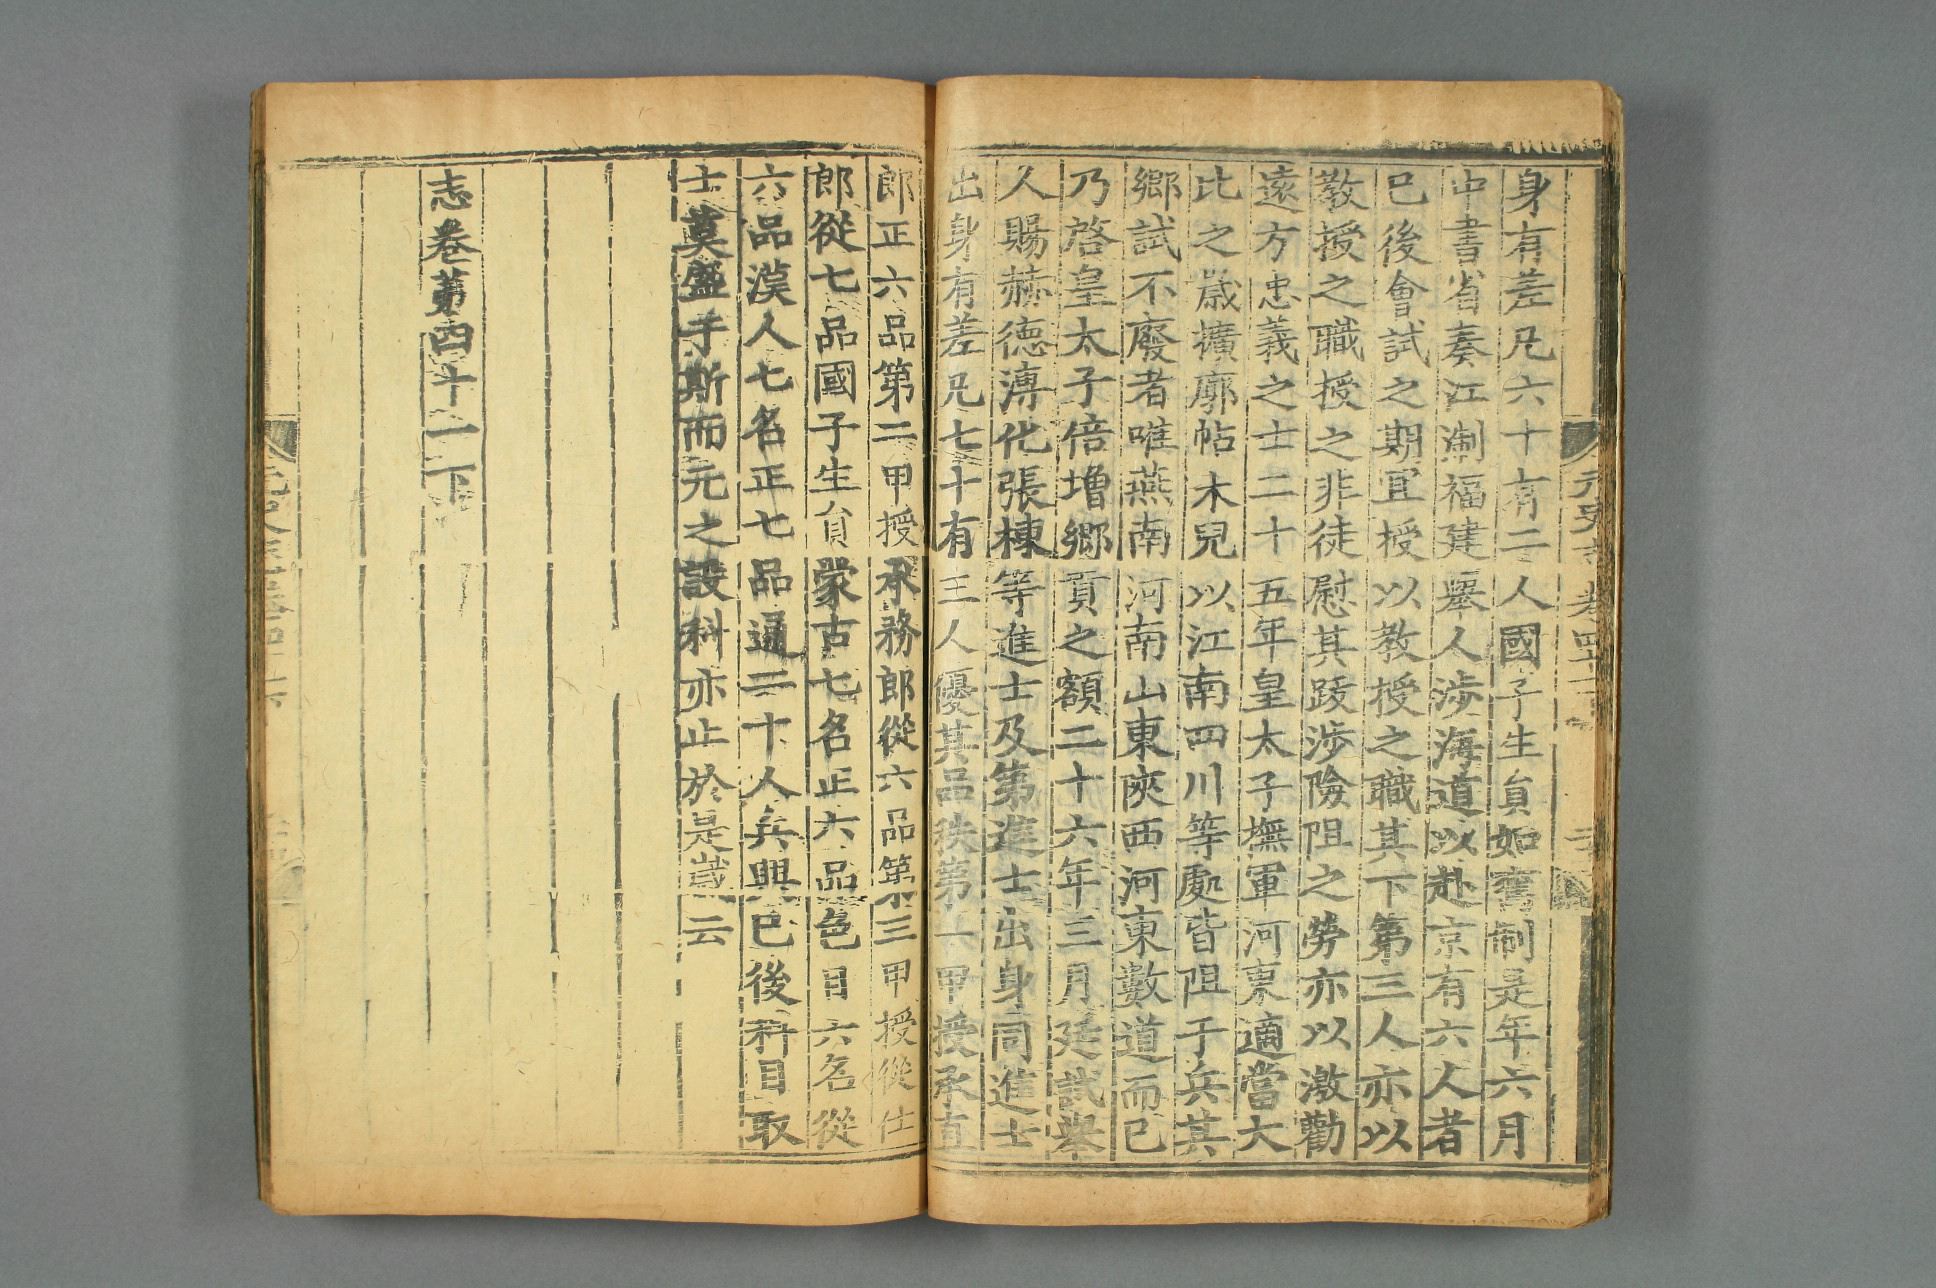 身有差凡六十有二人國子生員如舊制是年六月
中書省奏江浙福建舉人涉海道以赴京有六人者
已後會試之期宜授以教授之職其下第三人亦以
教授之職授之非徒慰其跋涉險阻之勞亦以激勸
遠方忠義之士二十五年皇太子撫軍河東適當大
比之歲擴廓帖木兒以江南四川等處皆阻于兵其
鄉試不廢者唯燕南河南山東陝西河東數道而已
乃啓皇太子倍增鄉貢之額二十六年三月廷試舉
人賜赫德溥化張棟等進士及第進士出身同進士
出身有差凡七十有三人優其品秩第一甲授承直
郎正六品第二甲授承務郎從六品第三甲授從仕
郎從七品國子生員蒙古七名正六品色目六名從
六品漢人七名正七品通二十人兵興已後科目取
士莫盛于斯而元之設科亦止於是歲云
志卷第四十一下